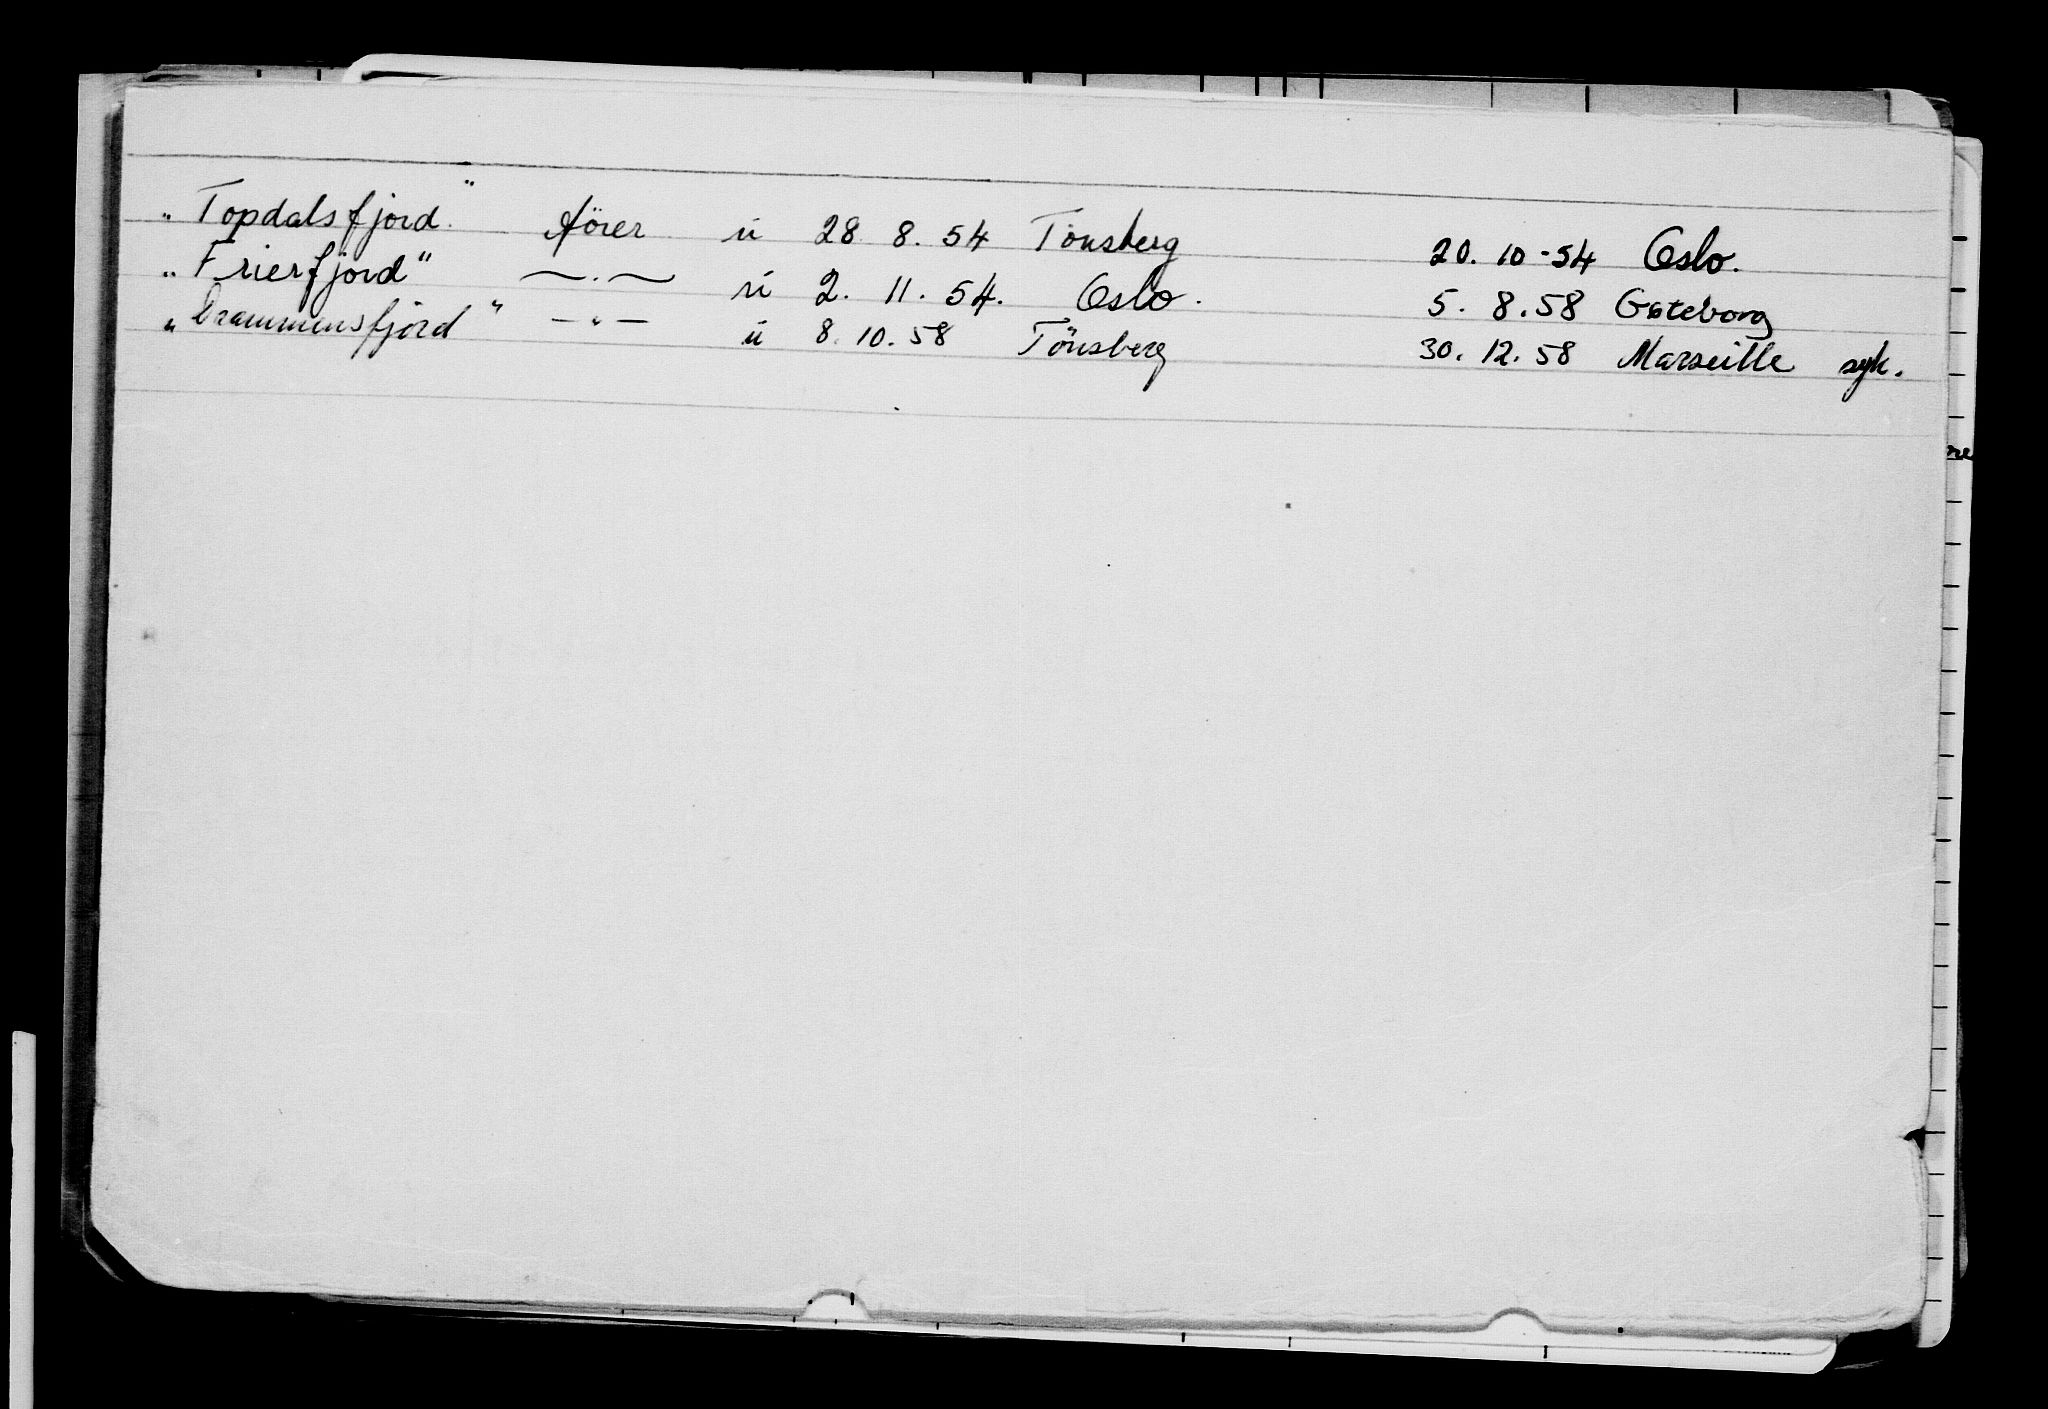 „Topdalsfjord." förer u 28 8. 54 Tönsberg 20. 10 - 54 Oslo.
„Frierfjord" —〃— u 2. 11. 54. Oslo. 5. 8. 58 Gøteborg
„Drammensfjord" —〃— u 8. 10. 58 Tönsberg 30. 12. 58 Marseille syk.